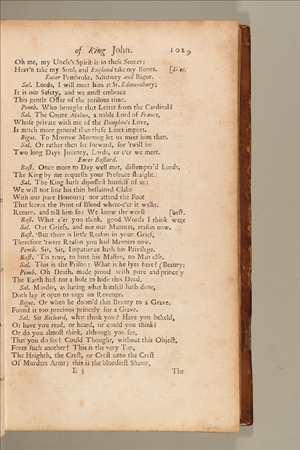 of King John. 1019
Oh me, my Uncle's Spirit is in these Stones;
Heav'n take my Soul, and England take my Bones. [Dies.
Enter Pembroke, Salisbury and Bigot.
Sal. Lords, I will meet him at St. Edmonsbury;
It is our Safety, and we must embrace
This gentle Offer of the perilous time.
Pemb. Who brought that Letter from the Cardinal?
Sal. The Count Melun, a noble Lord of France,
Whose private with me of the Dauphin's Love,
Is much more general than these Lines import.
Bigot. To Morrow Morning let us meet him then.
Sal. Or rather then set forward, for 'twill be
Two long Days Journey, Lords, or e'er we meet.
Enter Bastard.
Bast. Once more to Day well met, distemper'd Lords,
The King by me requests your Presence straight.
Sal. The King hath dispossest himself of us;
We will not line his thin bestained Cloke
With our pure Honours; nor attend the Foot
That leaves the Print of Blood where-e'er it walks.
Return, and tell him so: We know the worst
Bast. What e'er you think, good Words I think were [best.
Sal. Our Griefs, and not our Manners, reason now.
Bast. But there is little Reason in your Grief,
Therefore 'twere Reason you had Manners now.
Pemb. Sir, Sir, Impatience hath his Privilege.
Bast. 'Tis true, to hurt his Master, no Man else.
Sal. This is the Prison: What is he lyes here? [Beauty;
Pemb. Oh Death, made proud with pure and princely
The Earth had not a hole to hide this Deed.
Sal. Murder, as hating what himself hath done,
Doth lay it open to urge on Revenge.
Bigot. Or when he doom'd this Beauty to a Grave,
Found it too precious princely for a Grave.
Sal. Sir Richard, what think you? Have you beheld,
Or have you read, or heard, or could you think?
Or do you almost think, although you see,
That you do see? Could Thought, without this Object,
Form such another? This is the very Top,
The Heighth, the Crest, or Crest unto the Crest
Of Murders Arms; this is the bloodiest Shame,
E 5 The